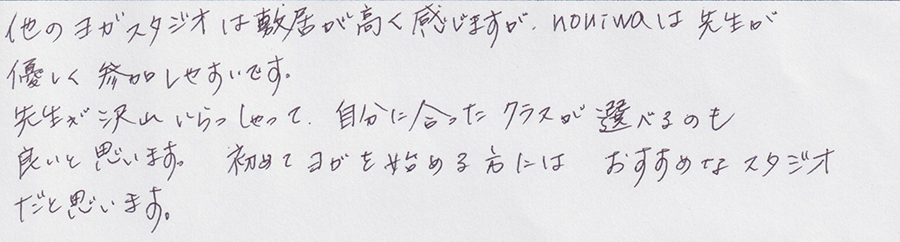 他のヨガスタジオは敷居が高く感じますが、noniwaは先生が
優しく参加しやすいです。
先生が沢山いらっしゃって、自分に合ったクラスが選べるのも
良いと思います。初めてヨガを始める方には おすすめなスタジオ
だと思います。